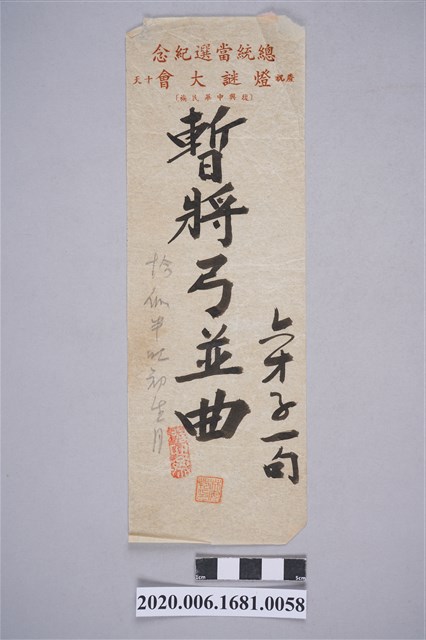 總統當選紀念
慶祝燈謎大會十天
〔復興中華民族〕
六才子一句
暫將弓並曲
恰似半吐初生月
1cm
5cm
2020.006.1681.0058